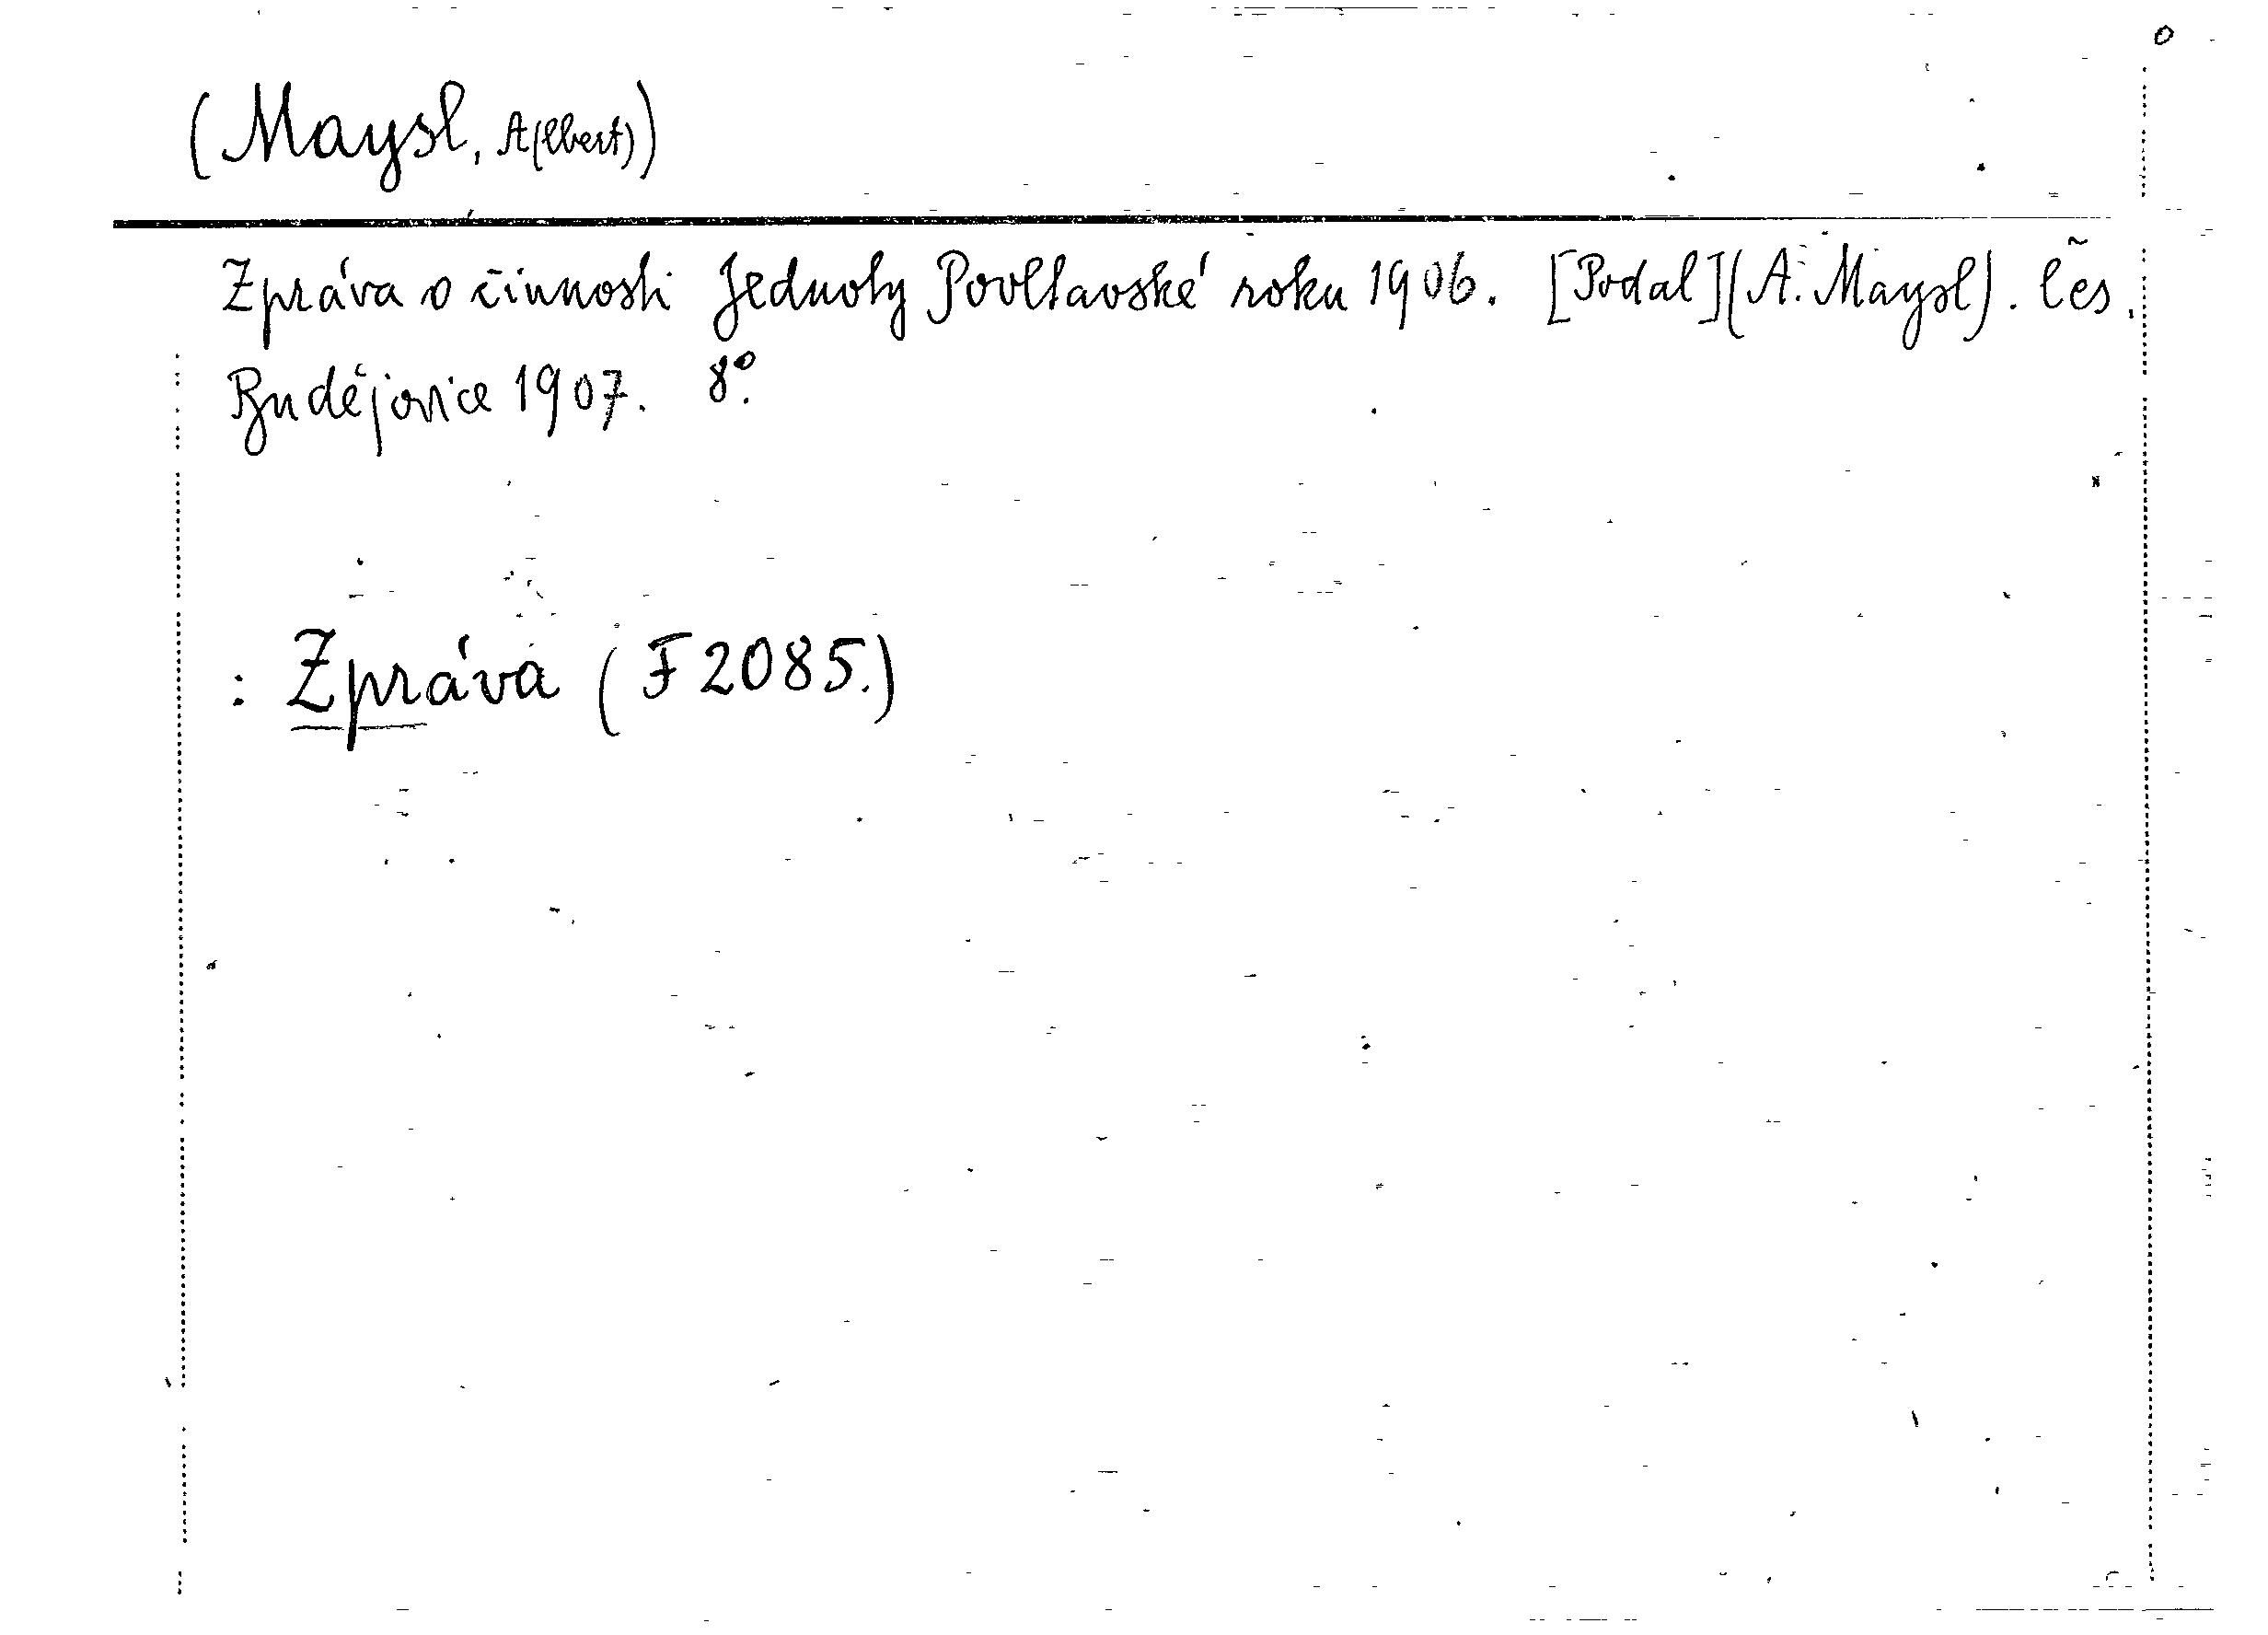 (Maysl, A(lbert))
Zpráva o činnosti Jednoty Povltavské roku 1906. [Podal](A. Maysl). Čes.
Budějovice 1907. 8°.
: Zpráva (F 2085.)